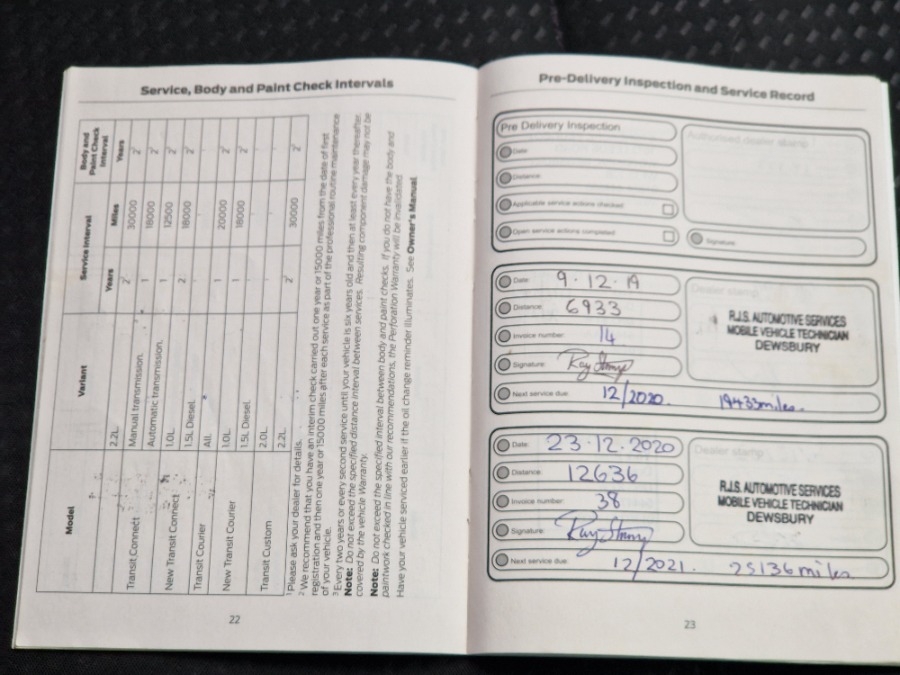 Service, Body and Paint Check Intervals
Model
Variant
Service Interval
Body and Paint Check Interval
Years
Miles
Years
Transit Connect
2.2L
Manual transmission.
2
30000
2
Automatic transmission.
1
18000
2
New Transit Connect
1.0L
1
12500
2
1.5L Diesel.
2
18000
2
Transit Courier
All.
New Transit Courier
1.0L
1
20000
2
1.5L Diesel.
1
18000
2
Transit Custom
2.0L
2.2L
2
30000
2
1 Please ask your dealer for details.
2 We recommend that you have an interim check carried out one year or 15000 miles from the date of first
registration and then one year or 15000 miles after each service as part of the professional routine maintenance
of your vehicle.
3 Every two years or every second service until your vehicle is six years old and then at least every year thereafter.
Note: Do not exceed the specified distance interval between services. Resulting component damage may not be
covered by the vehicle Warranty.
Note: Do not exceed the specified interval between body and paint checks. If you do not have the body and
paintwork checked in line with our recommendations, the Perforation Warranty will be invalidated.
Have your vehicle serviced earlier if the oil change reminder illuminates. See Owner's Manual
22
Pre-Delivery Inspection and Service Record
Pre Delivery Inspection
Authorised dealer stamp
Date:
Distance:
Applicable service actions checked
Open service actions completed
Signature:
Date: 9.12.19
Dealer stamp
Distance: 6933
Invoice number: 14
Signature:
R.J.S. AUTOMOTIVE SERVICES
MOBILE VEHICLE TECHNICIAN
DEWSBURY
Next service due: 12/2020. 19433 miles.
Date: 23.12.2020
Dealer stamp
Distance: 12636
Invoice number: 38
Signature:
R.J.S. AUTOMOTIVE SERVICES
MOBILE VEHICLE TECHNICIAN
DEWSBURY
Next service due: 12/2021. 25136 miles
23